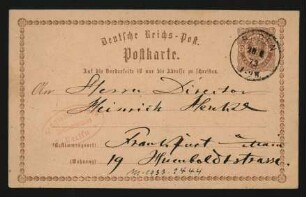 Deutsche Reichs-Post.
Postkarte.
Auf die Vorderseite ist nur die Adresse zu schreiben.
An Herrn Director
Heinrich Henkel
Frankfurt a Main
(Bestimmungsort)
(Wohnung) 19 Humboldtstrasse.